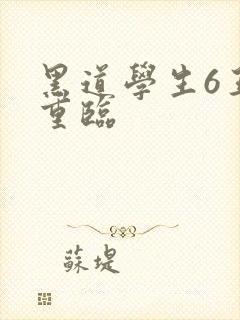 黑道學生6王
重臨
蘇堤